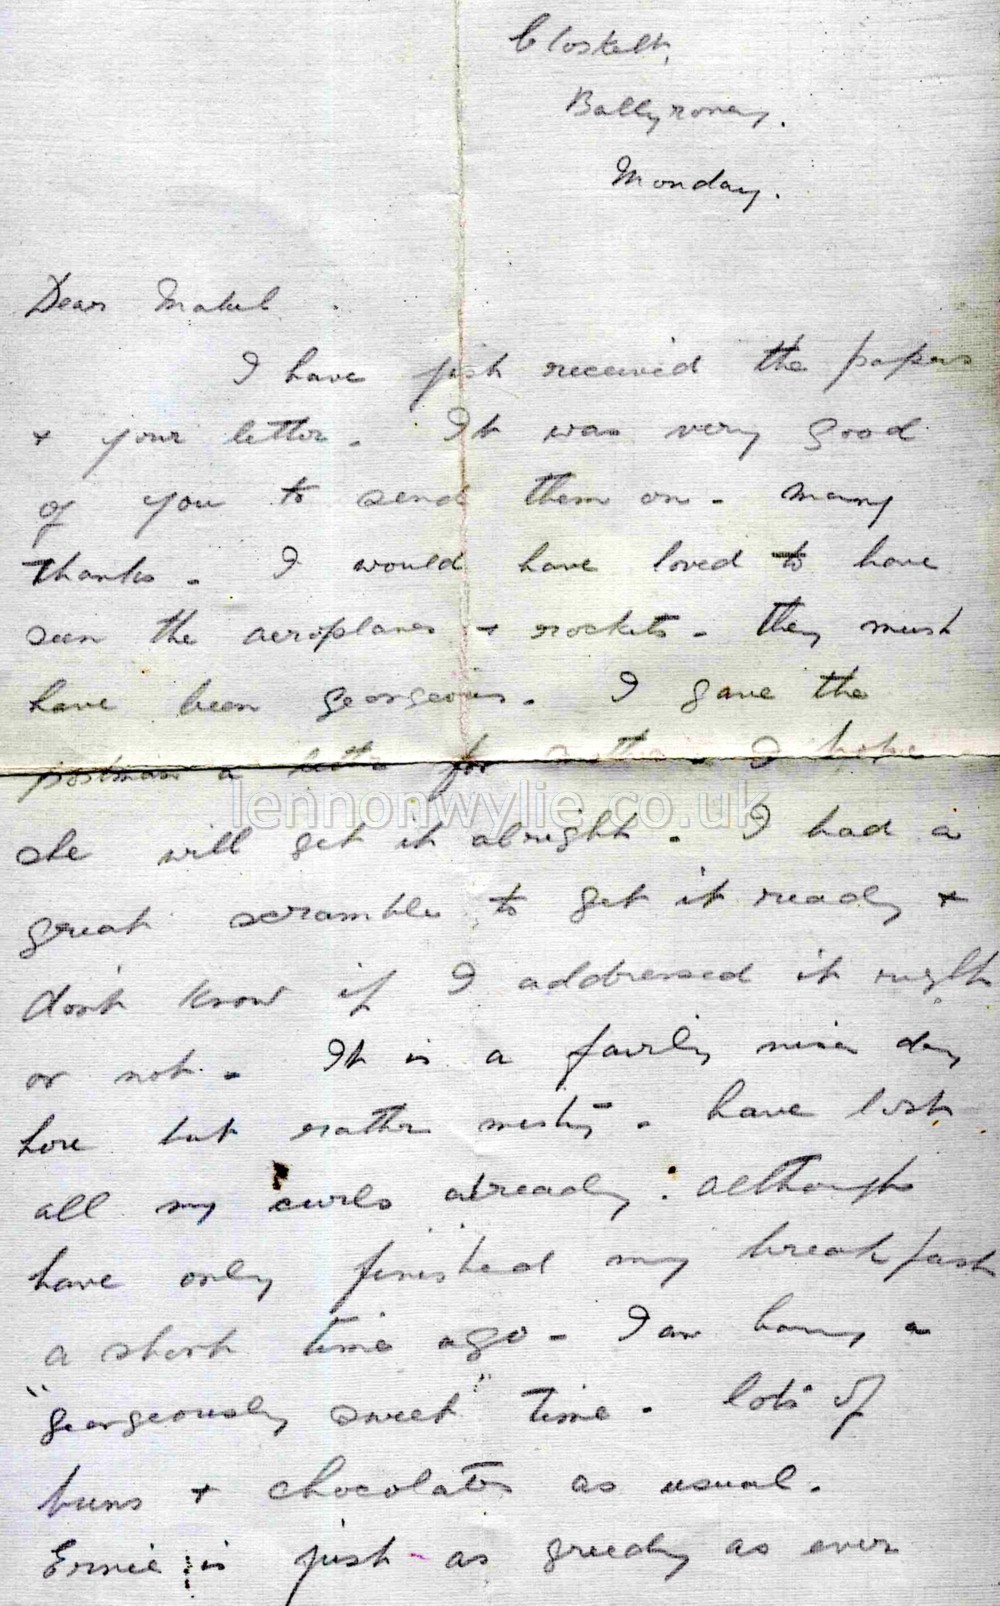 Closkelt,
Ballyroney.
Monday.
Dear Mabel.
I have just received the papers
& your letter. It was very good
of you to send them on. Many
thanks. I would have loved to have
seen the aeroplanes & rockets. They must
have been georgeous. I gave the
postman a letter for mother. I hope
lennonwylie.co.uk
she will get it alright. I had a
great scramble to get it ready &
don't know if I addressed it right
or not. It is a fairly nice day
here but rather misty. have lost
all my curls already. although
have only finished my breakfast
a short time ago. I am having a
"georgeously sweet" time. lots of
buns & chocolates as usual.
Ernie is just as greedy as ever